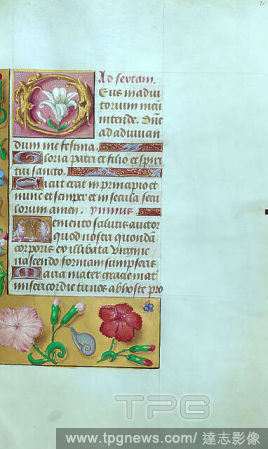 Ad sextam.
Deus in adiu
torium meū
intende. Dñe
ad adiuuan
dum me festina.
Gloria patri et filio et spiri
tui sancto.
Sicut erat in principio et
nunc et semper et in secula secu
lorum amen. ymnus
Memento salutis auctor
quod nostri quondā
corporis ex illibata virgine
nascendo formam sumpseris.
Maria mater gracie mat
misericordie tu nos ab hoste pro
TPG
www.tpgnews.com/達志影像